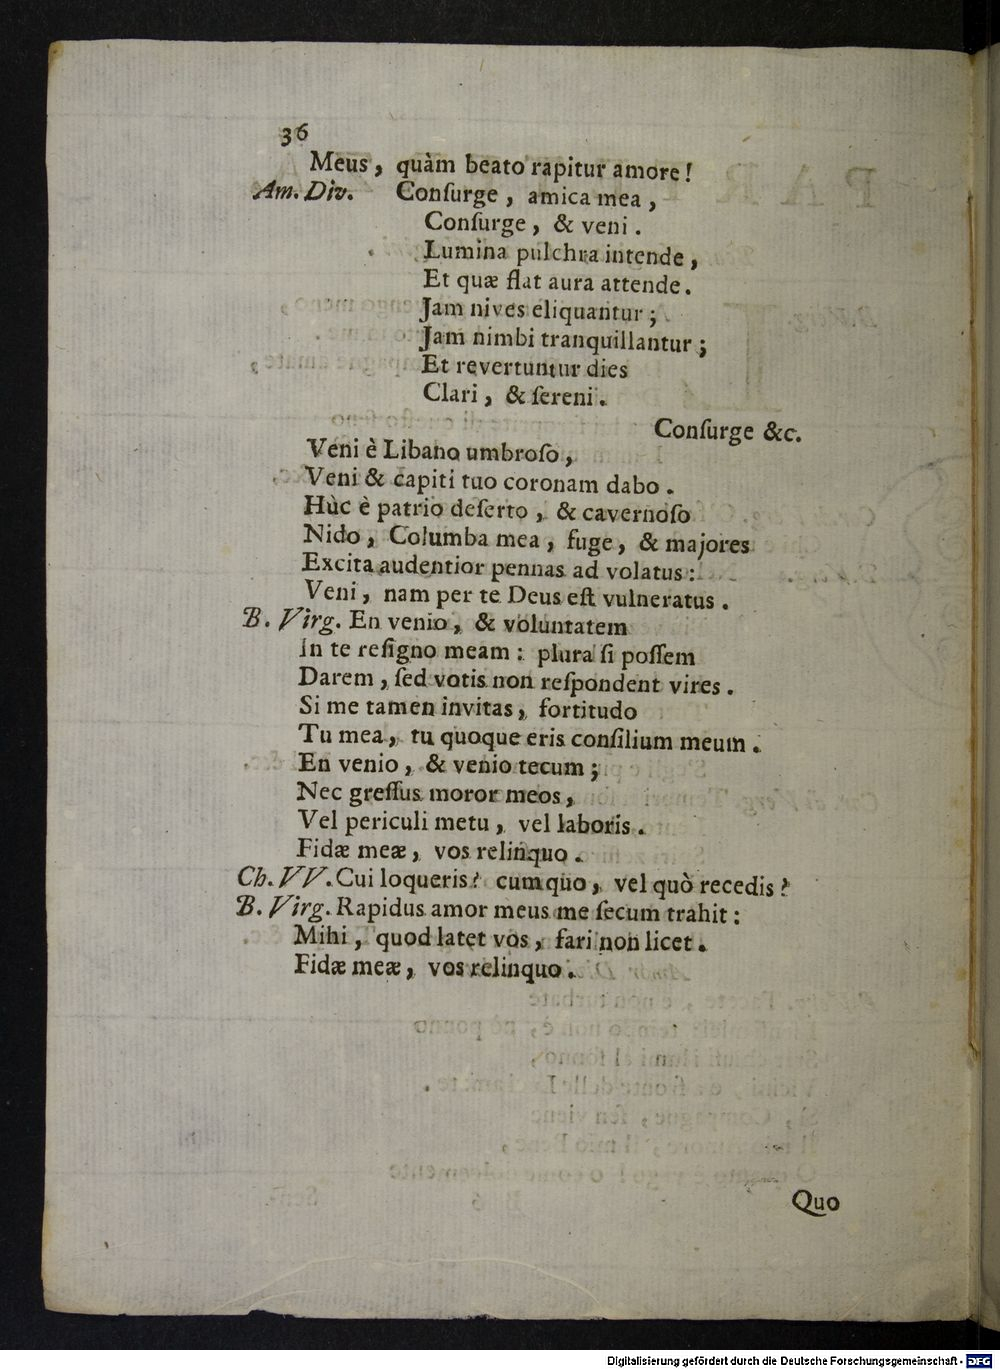 36
Meus, quàm beato rapitur amore!
Am. Div. Conſurge, amica mea,
Conſurge, & veni.
Lumina pulchra intende,
Et quæ flat aura attende.
Jam nives eliquantur;
Jam nimbi tranquillantur;
Et revertuntur dies
Clari, & ſereni.
Conſurge &c.
Veni è Libano umbroſo,
Veni & capiti tuo coronam dabo.
Hùc è patrio deſerto, & cavernoſo
Nido, Columba mea, fuge, & majores
Excita audentior pennas ad volatus:
Veni, nam per te Deus eſt vulneratus.
B. Virg. En venio, & voluntatem
In te reſigno meam: plura ſi poſſem
Darem, ſed votis non reſpondent vires.
Si me tamen invitas, fortitudo
Tu mea, tu quoque eris conſilium meum.
En venio, & venio tecum;
Nec greſſus moror meos,
Vel periculi metu, vel laboris.
Fidæ meæ, vos relinquo.
Ch. VV. Cui loqueris? cum quo, vel quò recedis?
B. Virg. Rapidus amor meus me ſecum trahit:
Mihi, quod latet vos, fari non licet.
Fidæ meæ, vos relinquo.
Quo
Digitalisierung gefördert durch die Deutsche Forschungsgemeinschaft - DFG